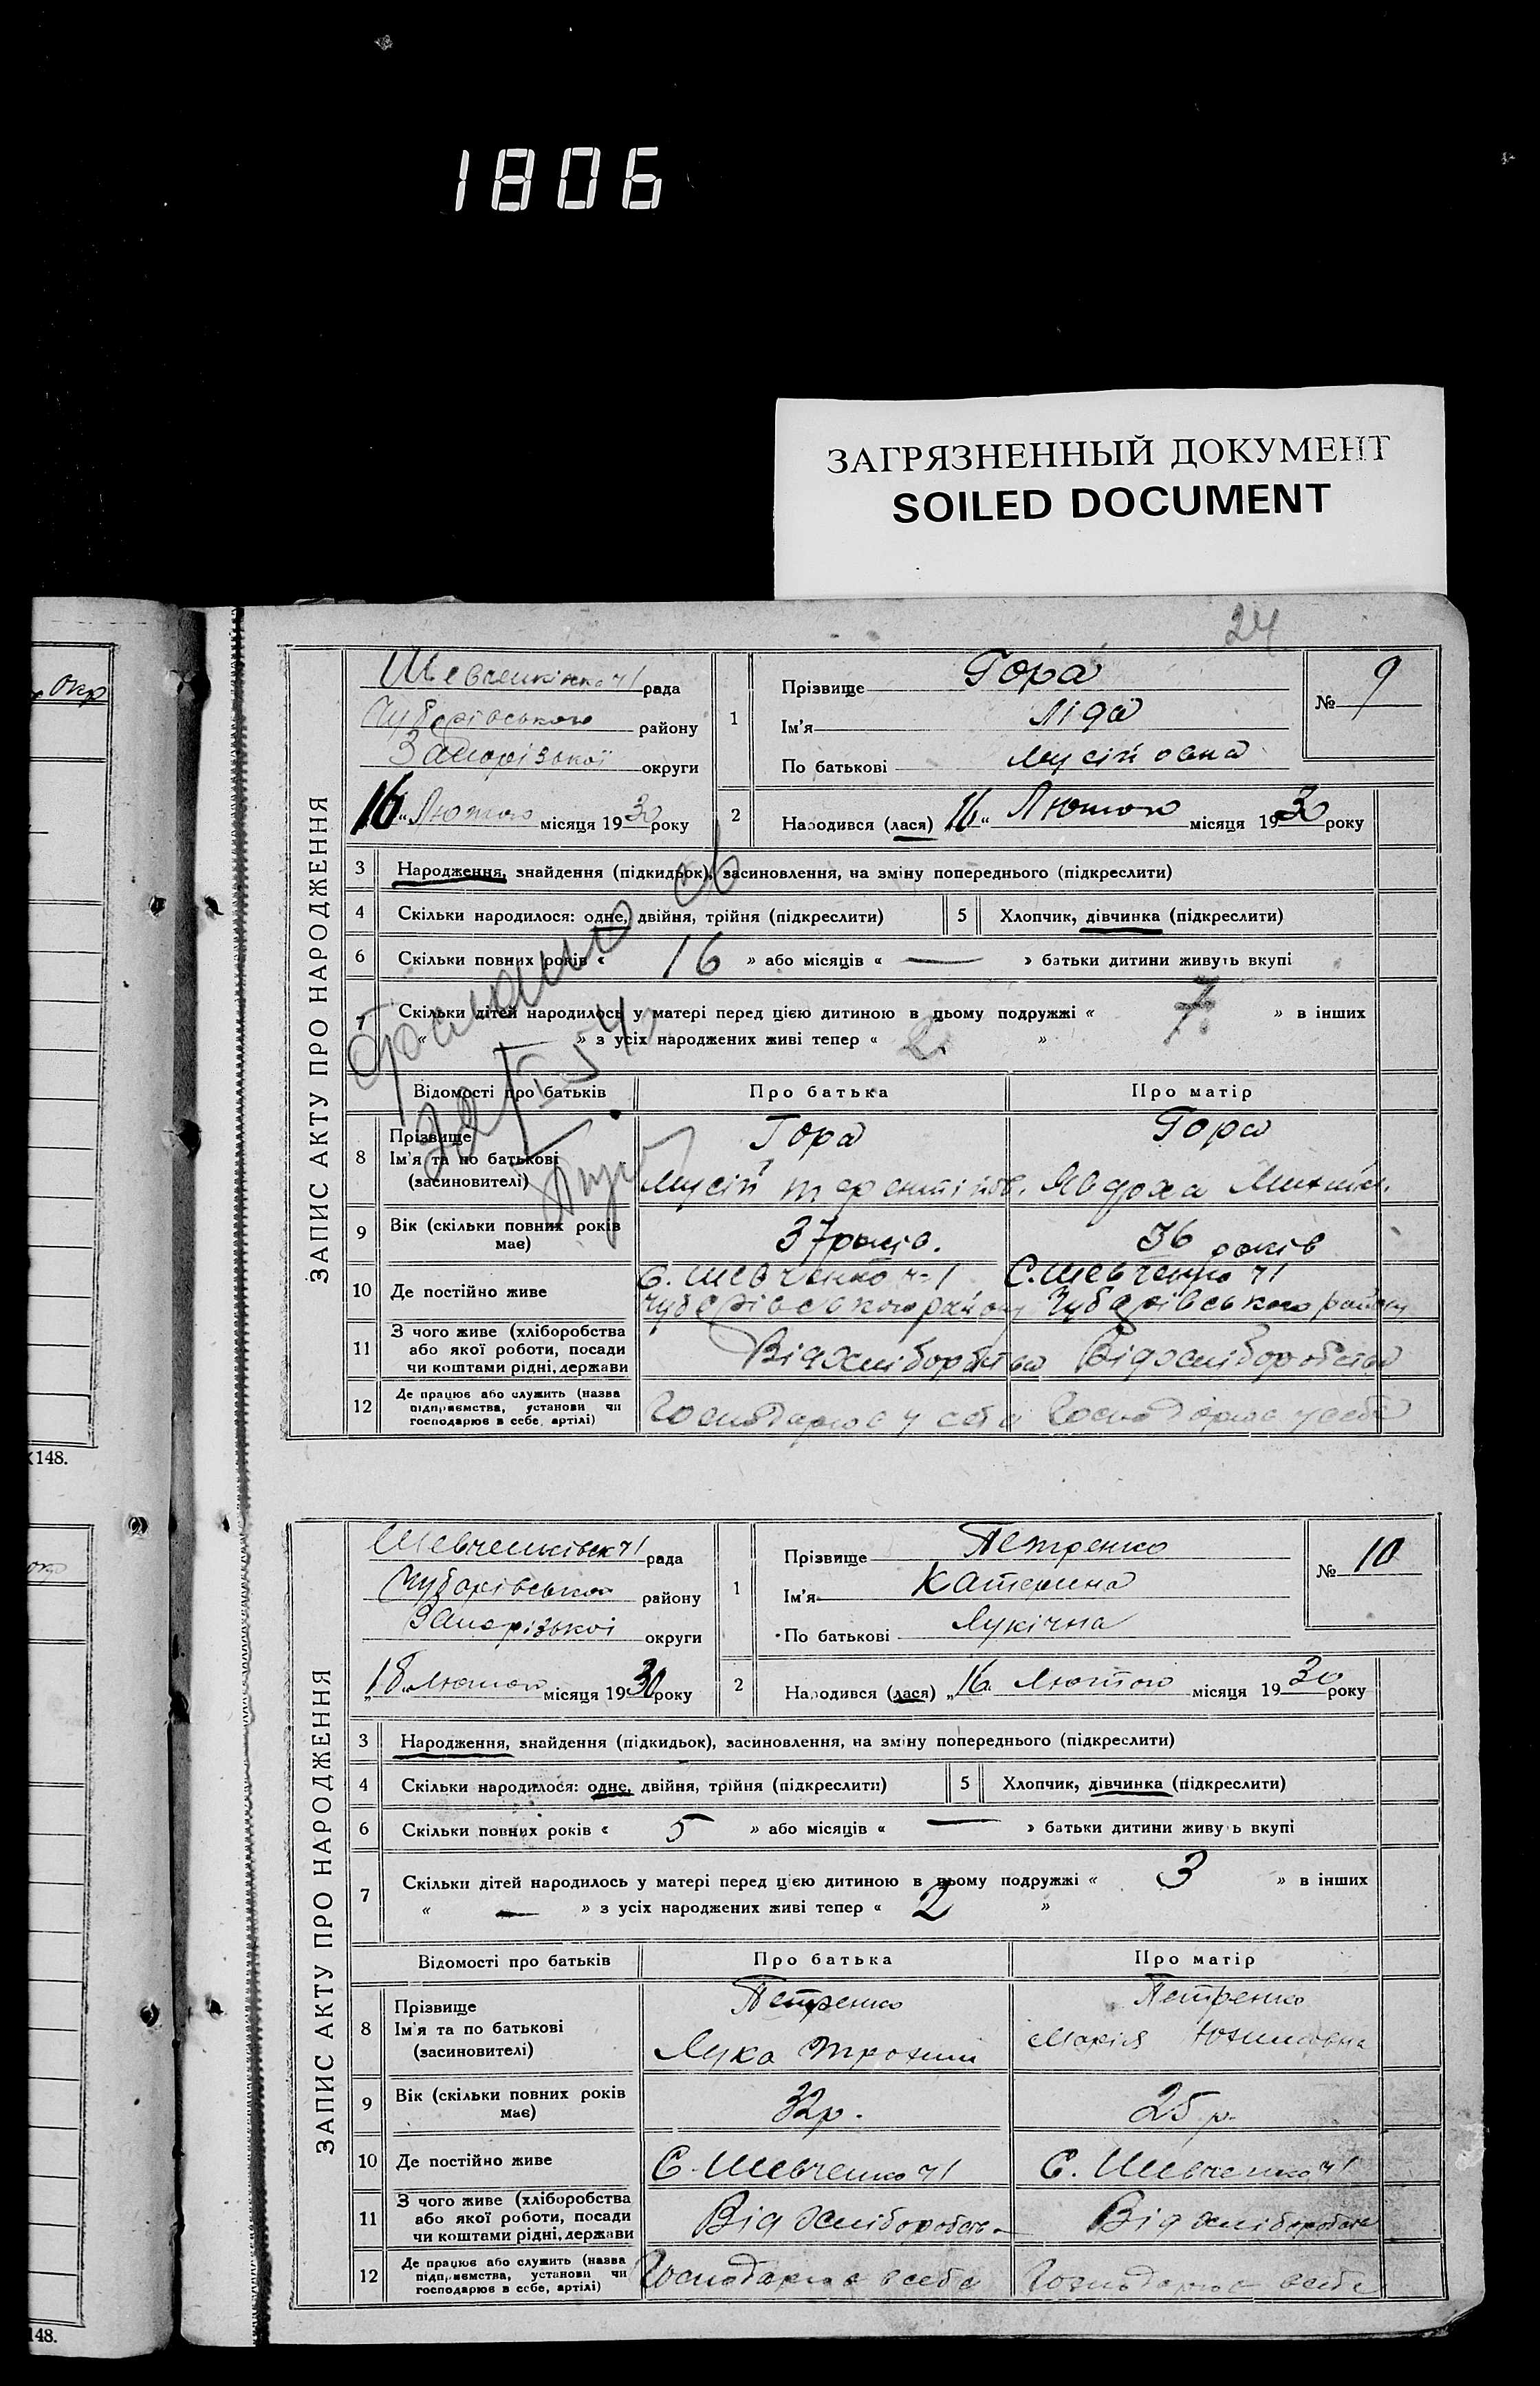 1806
ЗАГРЯЗНЕННЫЙ ДОКУМЕНТ
SOILED DOCUMENT
24
окр
148.
148.
ЗАПИС АКТУ ПРО НАРОДЖЕННЯ
Шевченківська ч1 рада
Чубарівського району
Запорізької округи
16 „ Лютого місяця 1930 року
1
Прізвище Гора
Ім'я Ліда
По батькові Мусійовна
№ 9
2
Народився (лася) 16 „ Лютого місяця 1930 року
3 Народження, знайдення (підкидьок), засиновлення, на зміну попереднього (підкреслити)
4 Скільки народилося: одне, двійня, трійня (підкреслити) 5 Хлопчик, дівчинка (підкреслити)
6 Скільки повних років « 16 » або місяців « — » батьки дитини живуть вкупі
7 Скільки дітей народилось у матері перед цією дитиною в цьому подружжі « 7 » в інших
« — » з усіх народжених живі тепер « 2 »
Відомості про батьків Про батька Про матір
8 Прізвище Гора Гора
Ім'я та по батькові Мусій Терентійов. Явдоха
(засиновителі)
9 Вік (скільки повних років має) 37 років. 36 років
10 Де постійно живе С. Шевченко ч-1 С. Шевченко ч1
Чубарівського району Чубарівського району
11 З чого живе (хліборобства або якої роботи, посади чи коштами рідні, держави Від хліборобства Від хліборобства
12 Де працює або служить (назва підприємства, установи чи господарює в себе, артілі) Господарює у себе Господарює у себе
ЗАПИС АКТУ ПРО НАРОДЖЕННЯ
Шевченківськ ч1 рада
Чубарівського району
Запорізької округи
„18 „ Лютого місяця 1930 року
1
Прізвище Петренко
Ім'я Катерина
По батькові Лукічна
№ 10
2
Народився (лася) „16 „ Лютого місяця 1930 року
3 Народження, знайдення (підкидьок), засиновлення, на зміну попереднього (підкреслити)
4 Скільки народилося: одне, двійня, трійня (підкреслити) 5 Хлопчик, дівчинка (підкреслити)
6 Скільки повних років « 5 » або місяців « — » батьки дитини живуть вкупі
7 Скільки дітей народилось у матері перед цією дитиною в цьому подружжі « 3 » в інших
« — » з усіх народжених живі тепер « 2 »
Відомості про батьків Про батька Про матір
8 Прізвище Петренко Петренко
Ім'я та по батькові Лука Трохим Марія Юхимовна
(засиновителі)
9 Вік (скільки повних років має) 32 р. 25 р.
10 Де постійно живе С. Шевченко ч1 С. Шевченко ч1
11 З чого живе (хліборобства або якої роботи, посади чи коштами рідні, держави Від хліборобств. Від хліборобств
12 Де працює або служить (назва підприємства, установи чи господарює в себе, артілі) Господарює в себе Господарює в себе